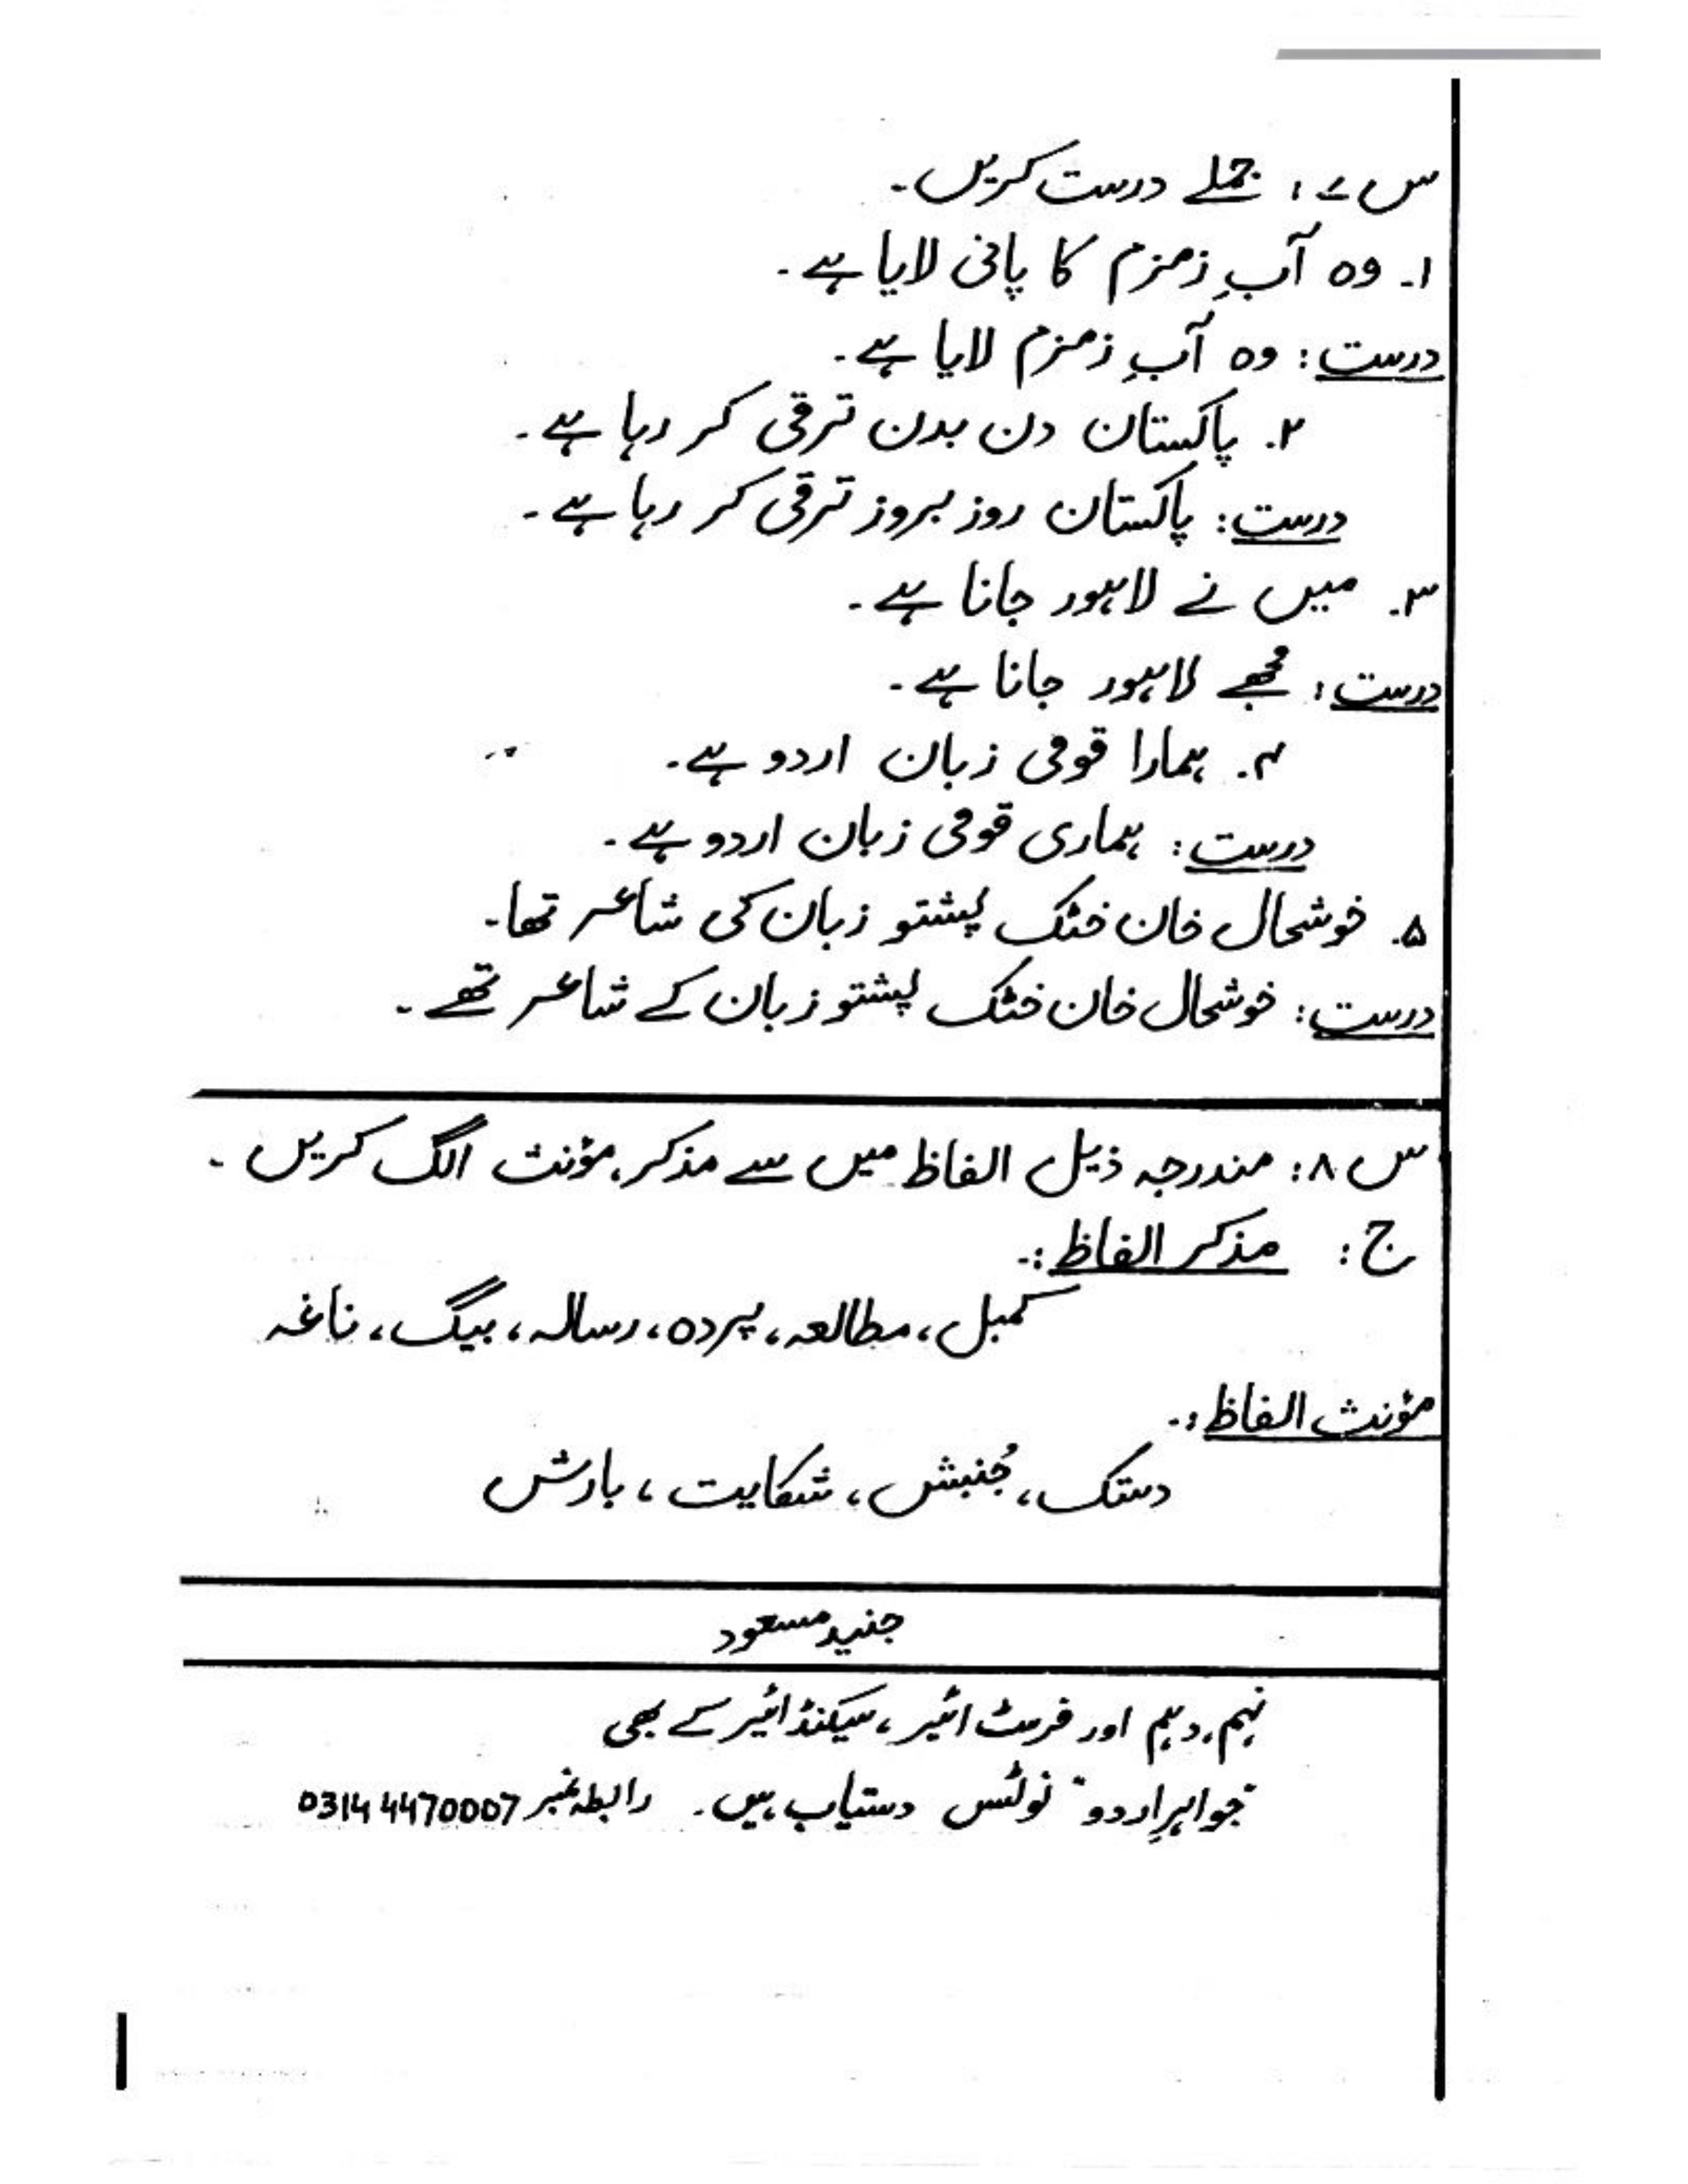 س ۷: جملے درست کریں۔
۱۔ وہ آبِ زمزم کا پانی لایا ہے۔
درست: وہ آبِ زمزم لایا ہے۔
۲۔ پاکستان دن بدن ترقی کر رہا ہے۔
درست: پاکستان روز بروز ترقی کر رہا ہے۔
۳۔ میں نے لاہور جانا ہے۔
درست: مجھے لاہور جانا ہے۔
۴۔ ہمارا قومی زبان اردو ہے۔
درست: ہماری قومی زبان اردو ہے۔
۵۔ خوشحال خان خٹک پشتو زبان کی شاعر تھا۔
درست: خوشحال خان خٹک پشتو زبان کے شاعر تھے۔
س ۸: مندرجہ ذیل الفاظ میں سے مذکر، مؤنث الگ کریں۔
ج: مذکر الفاظ:۔
کمبل، مطالعہ، پردہ، رسالہ، بیگ، ناغہ
مؤنث الفاظ:۔
دستک، جُنبش، شکایت، بارش
جنید مسعود
نہم، دہم اور فرسٹ ائیر، سیکنڈ ائیر کے بھی
"جواہرِ اردو" نوٹس دستیاب ہیں۔ رابطہ نمبر 0314 4470007